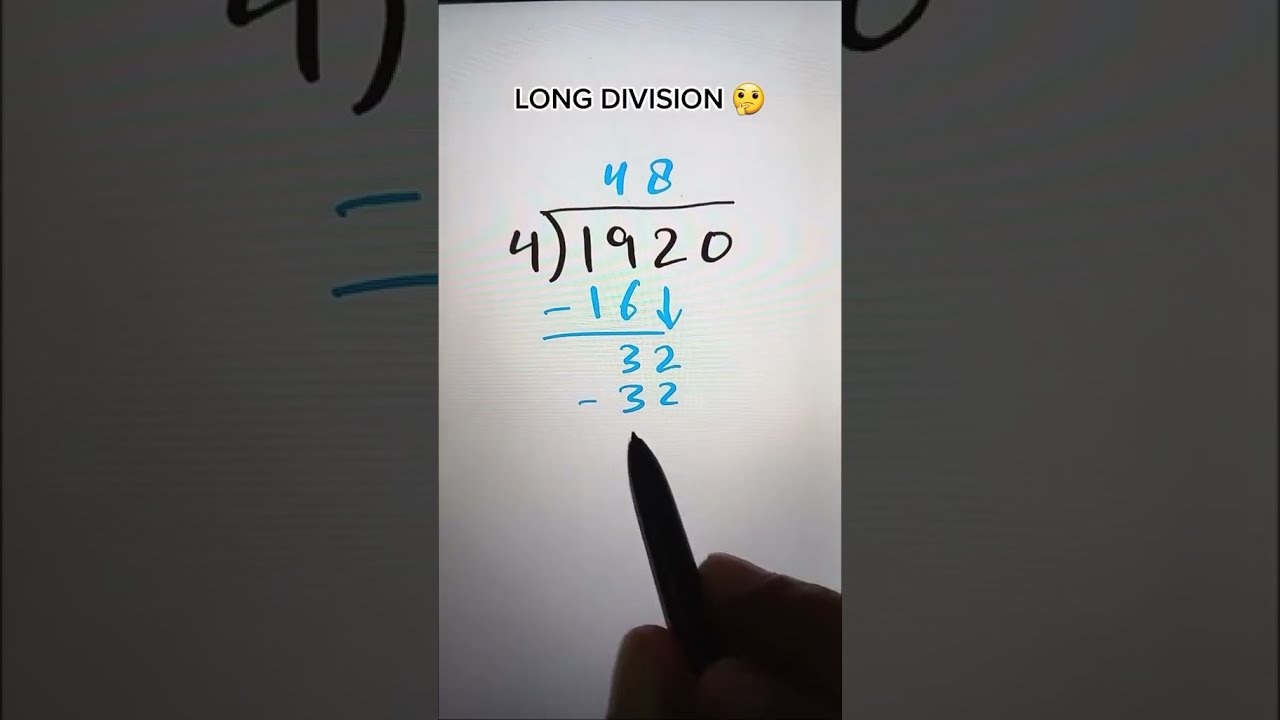 LONG DIVISION 🤔
48
4)1920
-16↓
32
-32